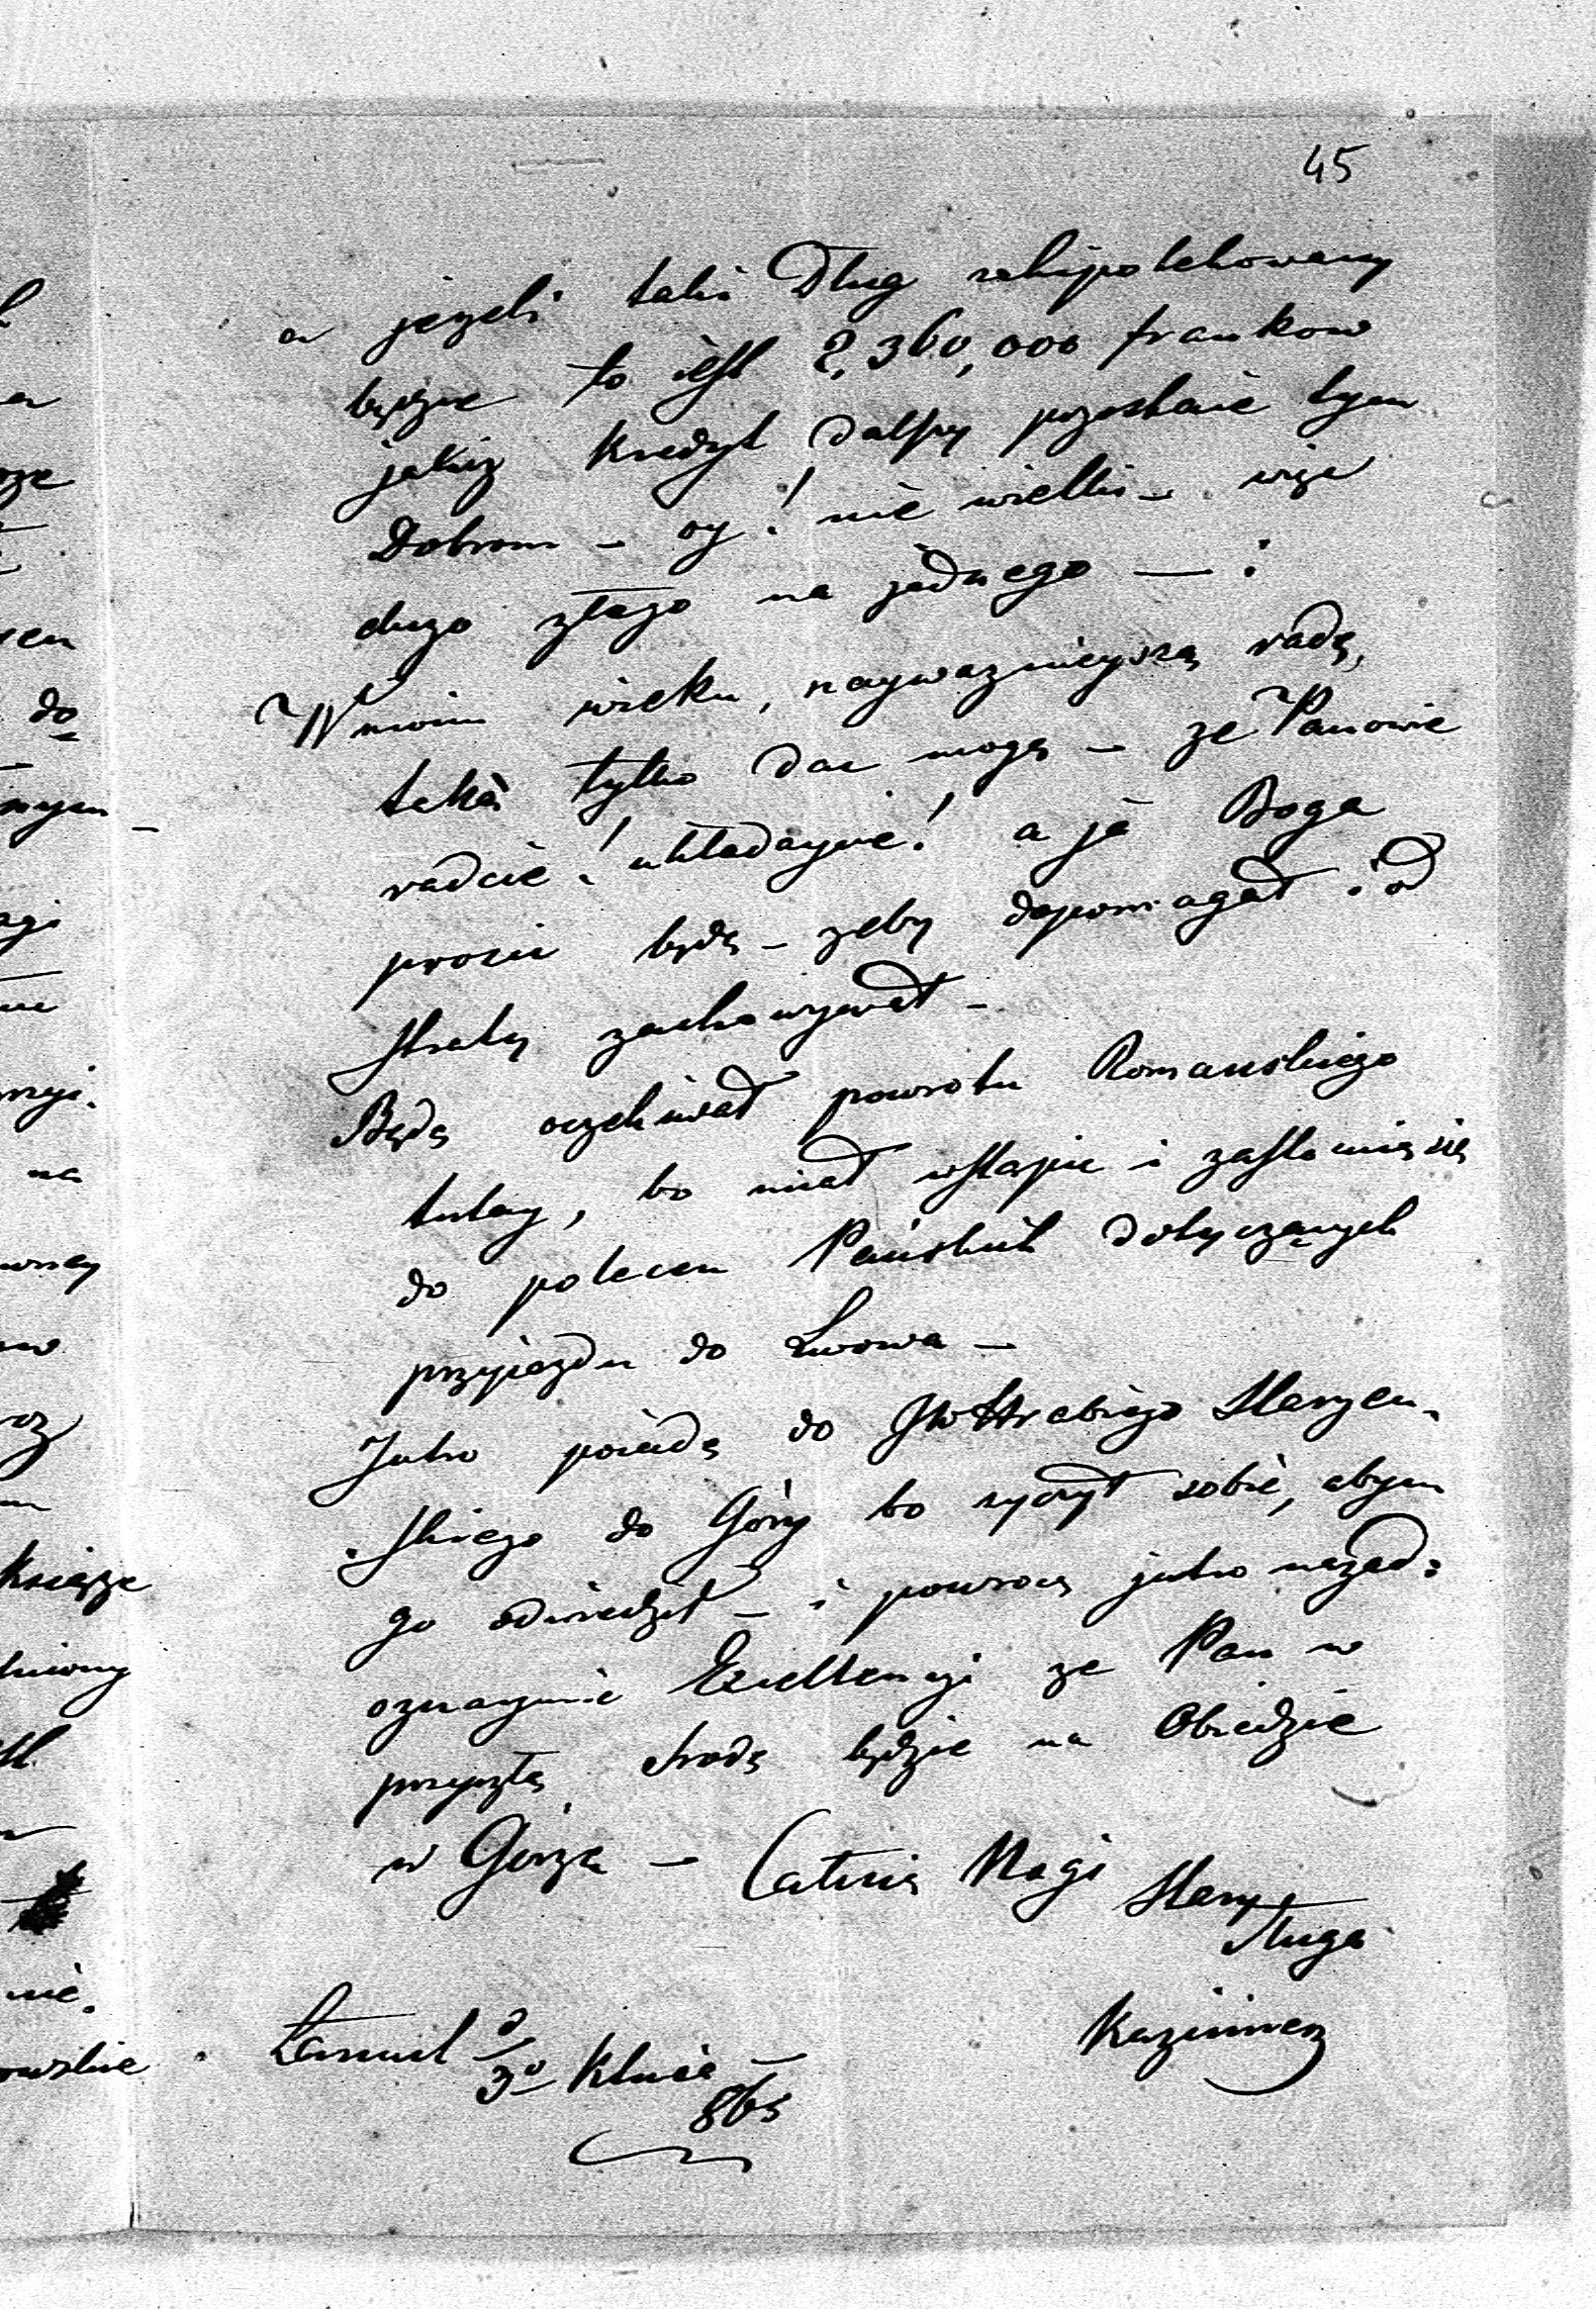 45
a jezeli taki Dług zahipotekowany
będzie to iest 2,360,000 frankow
jakiz kredyt dalszy pozostaie tym
Dobrom – oy! nie wielki – więc
dużo złego na jednego — :
W moim wieku, naywazniejszą radę,
taką tylko dac mogę – ze Panowie
radzcie! układaycie! a ja Boga
prosic będę – zeby dopomagał i od
straty zachowywał –
Będę oczekiwał powrotu Romanskiego
tutay, bo miał wstąpic i zastosuię się
do polecen Pańskich dotyczących
przyiazdu do Lwowa –
Jutro poiadę do JW Hrabiego Starzen„
„skiego do Góry bo zyczył sobie, abym
go odwiedził – i powrocę jutro nazad:
oznaymię Excellencyi ze Pan w
przyszłą srodę będzie na Obiedzie
w Górze – Całuię Nogi
Stary
Sługa
Kazimierz
Łancut d 30 Ktnia
865
do
Książe
nie.
na